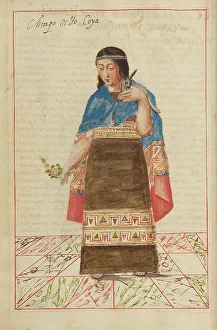 Chimpo Oello Coya